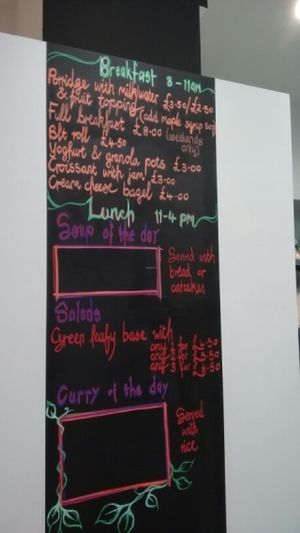 Breakfast 8-11am
Porridge with milk/water £3.50/£2.50
& fruit topping (add maple syrup 50p)
Full breakfast £8.00 (weekends only)
Blt roll £4.50
Yoghurt & granola pots £3.00
Croissant with jam £3.00
Cream cheese bagel £4.00
Lunch 11-4 pm
Soup of the day
Served with
bread or
oatcakes
Salads
Green leafy base with
any 1 for £4.50
any 2 for £5.50
any 3 for £6.50
Curry of the day
Served
with
rice